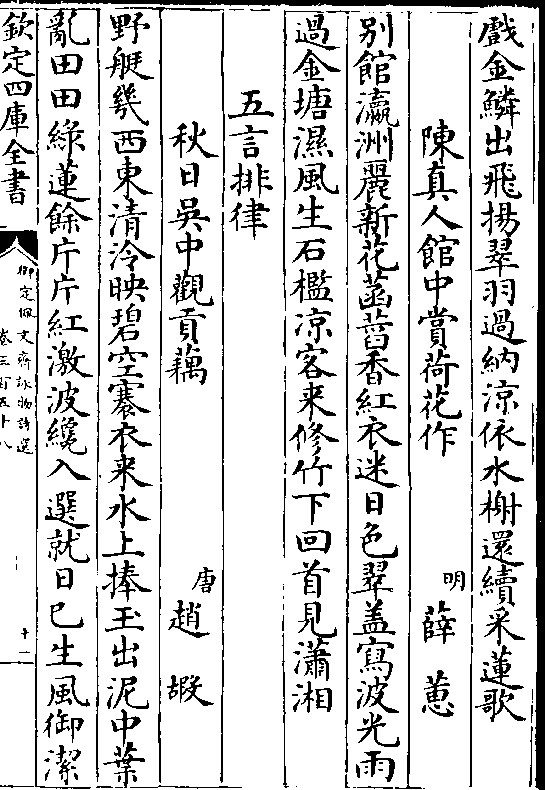 戲金鱗出飛揚翠羽過納凉依水榭還續采蓮歌
陳真人館中賞荷花作
明 薛蕙
别館瀛洲麗新花菡萏香紅衣迷日色翠盖寫波光雨
過金塘濕風生石檻凉客来修竹下回首見瀟湘
五言排律
秋日吳中觀貢藕
唐 趙嘏
野艇幾西東清泠映碧空褰衣来水上捧玉出泥中葉
亂田田綠蓮餘片片紅激波纔入選就日已生風御潔
欽定四庫全書
御定佩文齋詠物詩選
卷三百五十八
十一